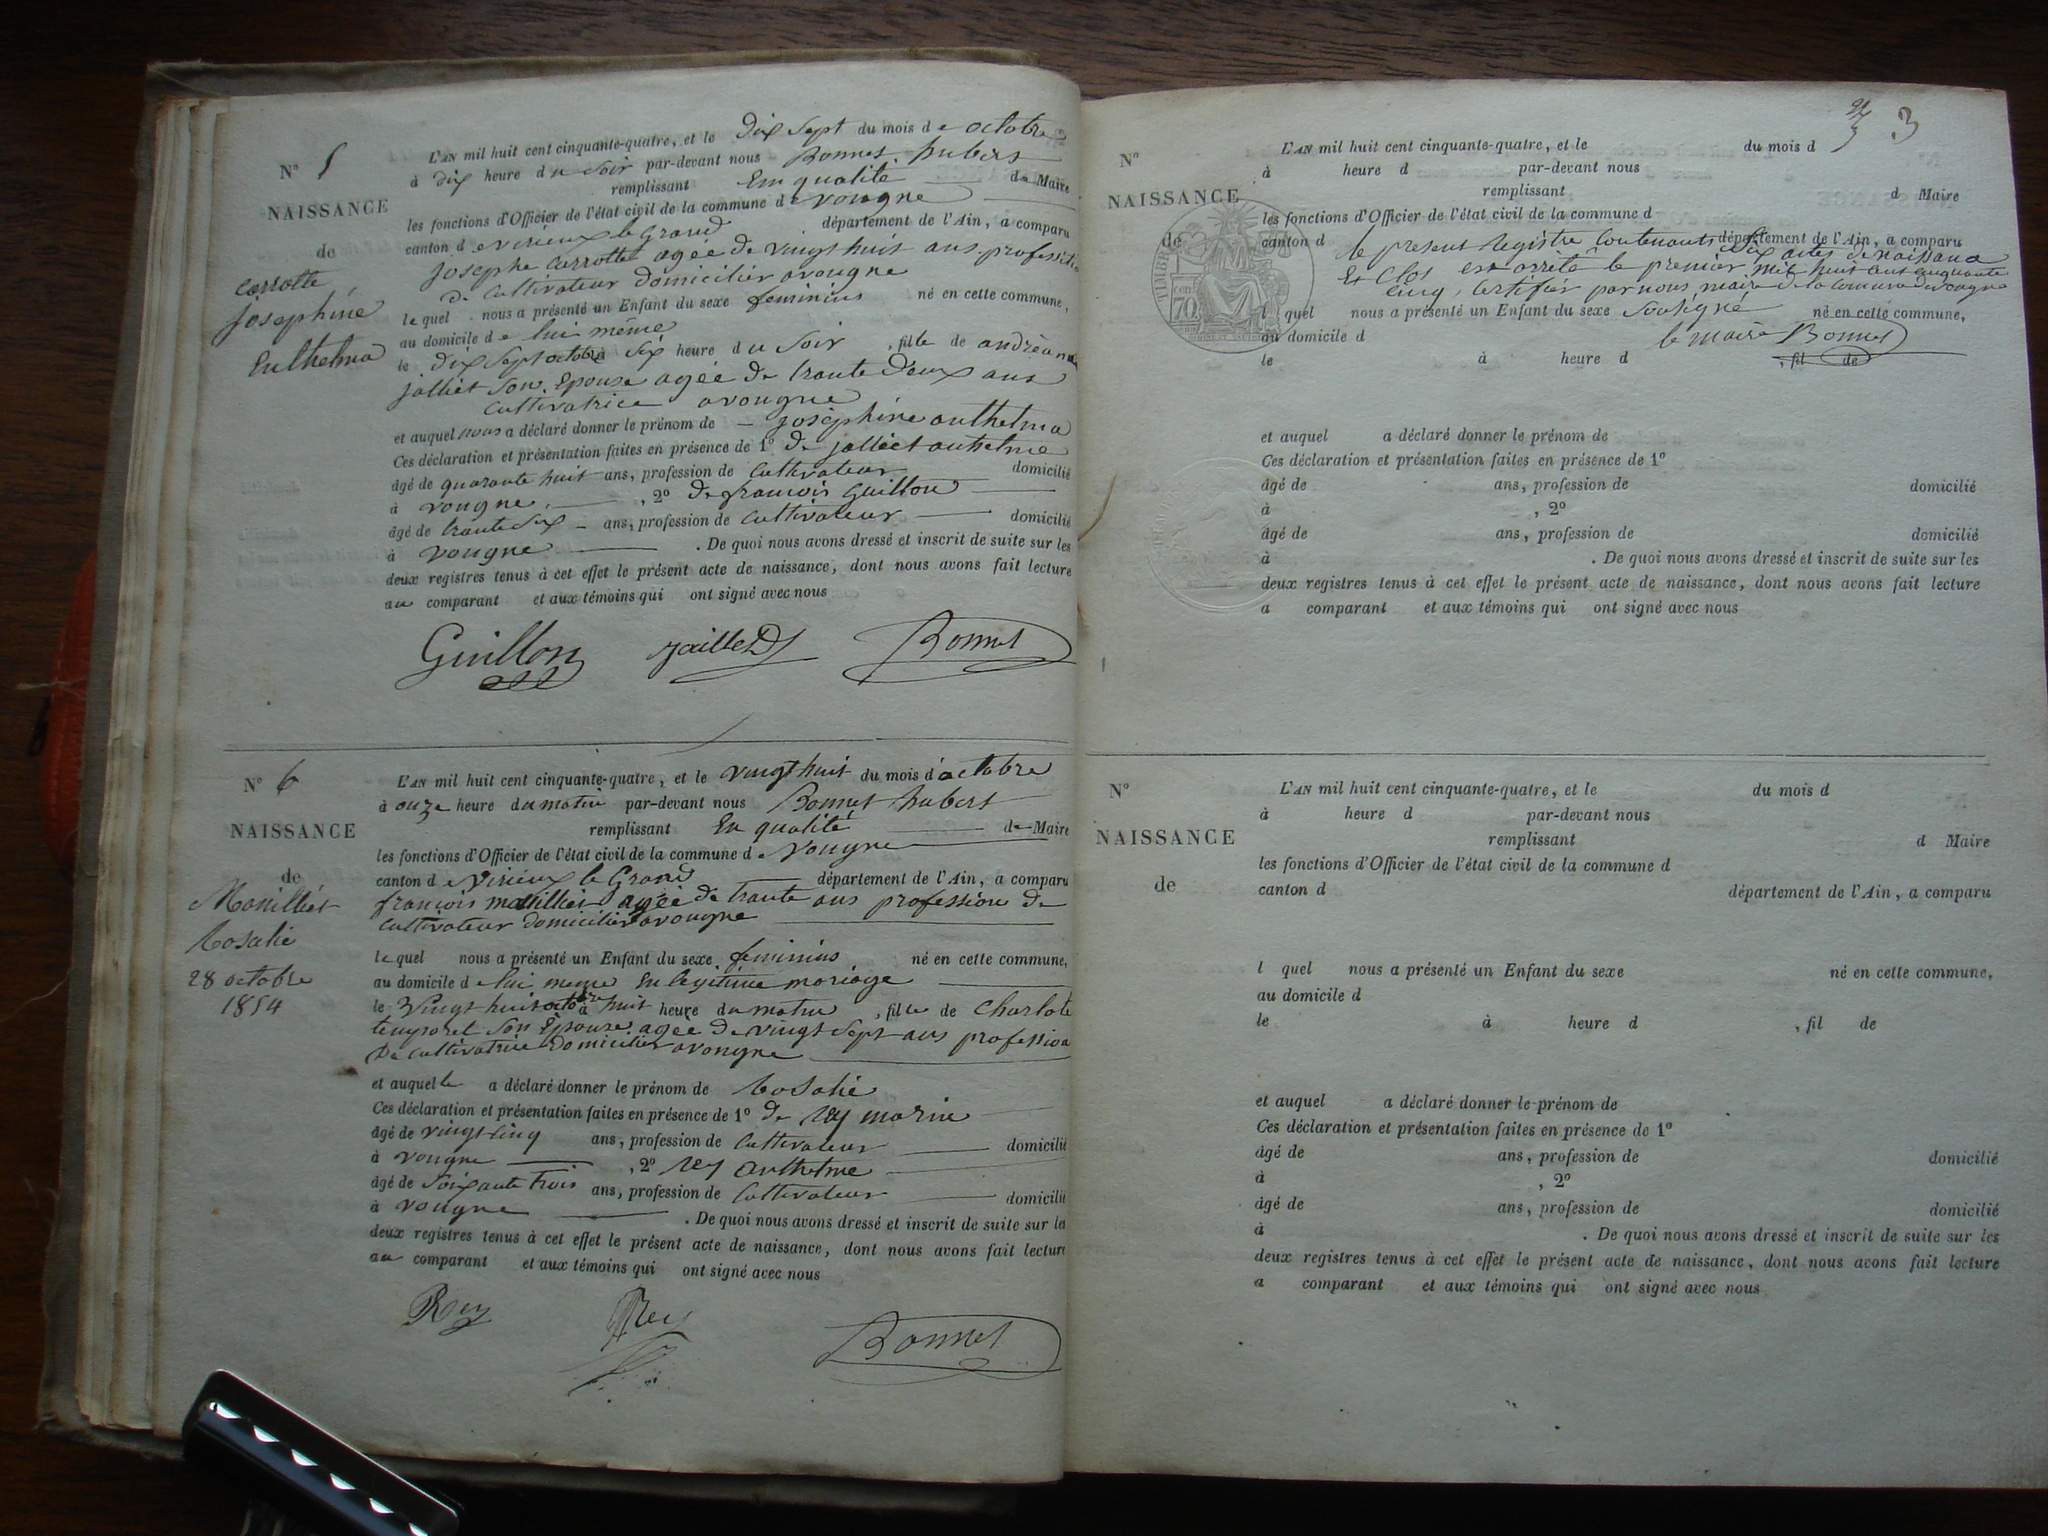 N° 5
NAISSANCE
de
Carrotte
Joséphine
L'AN mil huit cent cinquante-quatre, et le Dix Sept du mois de octobre
à dix heure du Soir par-devant nous Bonnet hubert
remplissant En qualité de Maire
les fonctions d'Officier de l'état civil de la commune de vongne
canton de virieux le Grand département de l'Ain, a comparu
Josephe Carrotte agée de vingt huit ans profession
de Cultivateur domicilier avongne
le quel nous a présenté un Enfant du sexe feminins né en cette commune,
au domicile de lui même
le Dix Sept octobre à Six heure du Soir, fille de andréa
jolliet Son Epouse agée de trante Deux ans
Cultivatrice avongne
et auquel nous a déclaré donner le prénom de Joséphine anthelma
Ces déclaration et présentation faites en présence de 1° De jolliet anthelme
âgé de quarante huit ans, profession de Cultivateur domicilié
à vongne, 2° De francois Guillon
âgé de trante Six ans, profession de Cultivateur domicilié
à vongne. De quoi nous avons dressé et inscrit de suite sur les
deux registres tenus à cet effet le présent acte de naissance, dont nous avons fait lecture
au comparant et aux témoins qui ont signé avec nous
Guillon Jaillet Bonnet
N° 6
NAISSANCE
de
Monilliet
Rosalie
28 octobre
1854
L'AN mil huit cent cinquante-quatre, et le vingt huit du mois d'octobre
à onze heure du matin par-devant nous Bonnet hubert
remplissant En qualité de Maire
les fonctions d'Officier de l'état civil de la commune de vongne
canton de virieux le Grand département de l'Ain, a comparu
françois agée de trante ans profession de
Cultivateur domicilier avongne
le quel nous a présenté un Enfant du sexe feminins né en cette commune,
au domicile de lui meme En legitime mariage
le Vingt huit octobre à huit heure du matin, fille de Charlote
Son Epouse agée de vingt Sept ans profession
De Cultivatrice Domicilier avongne
et auquel le a déclaré donner le prénom de Rosalie
Ces déclaration et présentation faites en présence de 1° De rey marin
âgé de vingt cinq ans, profession de Cultivateur domicilié
à vongne, 2° rey anthelme
âgé de Soixante trois ans, profession de Cultivateur domicilié
à vongne. De quoi nous avons dressé et inscrit de suite sur les
deux registres tenus à cet effet le présent acte de naissance, dont nous avons fait lecture
au comparant et aux témoins qui ont signé avec nous
Rey Rey Bonnet
3
N°
NAISSANCE
de
L'AN mil huit cent cinquante-quatre, et le du mois d
à heure d par-devant nous
remplissant d Maire
les fonctions d'Officier de l'état civil de la commune d
canton d département de l'Ain, a comparu
le present registre Contenants Six actes de naissance
Et Clos est arrêté le premier mil huit cent cinquante
cinq, Certifier par nous maire de la commune de vongne
l quel nous a présenté un Enfant du sexe Soussigné né en cette commune,
au domicile d le maire Bonnet
le à heure d, fil de
TIMBRE
70
et auquel a déclaré donner le prénom de
Ces déclaration et présentation faites en présence de 1°
âgé de ans, profession de domicilié
à, 2°
âgé de ans, profession de domicilié
à. De quoi nous avons dressé et inscrit de suite sur les
deux registres tenus à cet effet le présent acte de naissance, dont nous avons fait lecture
a comparant et aux témoins qui ont signé avec nous
N°
NAISSANCE
de
L'AN mil huit cent cinquante-quatre, et le du mois d
à heure d par-devant nous
remplissant d Maire
les fonctions d'Officier de l'état civil de la commune d
canton d département de l'Ain, a comparu
l quel nous a présenté un Enfant du sexe né en cette commune,
au domicile d
le à heure d, fil de
et auquel a déclaré donner le prénom de
Ces déclaration et présentation faites en présence de 1°
âgé de ans, profession de domicilié
à, 2°
âgé de ans, profession de domicilié
à. De quoi nous avons dressé et inscrit de suite sur les
deux registres tenus à cet effet le présent acte de naissance, dont nous avons fait lecture
a comparant et aux témoins qui ont signé avec nous